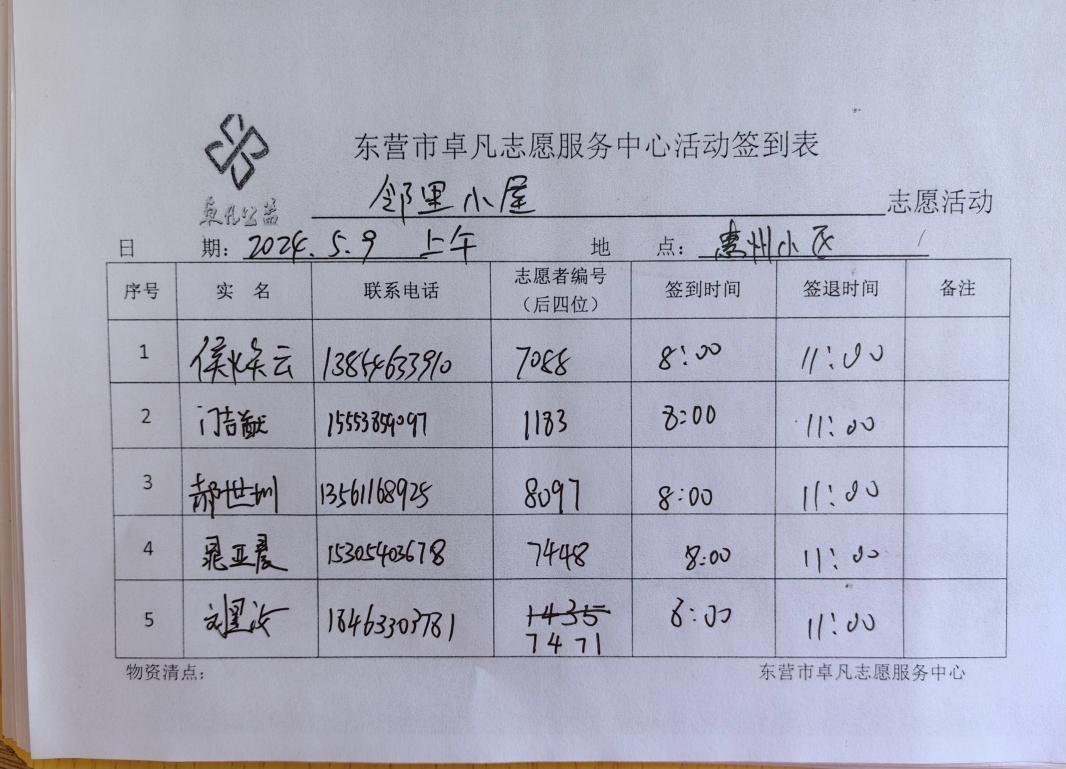 东营市卓凡志愿服务中心活动签到表
卓凡公益
邻里小屋 志愿活动
日 期: 2024.5.9 上午 地 点: 惠州小区
序号 实 名 联系电话 志愿者编号（后四位） 签到时间 签退时间 备注
1 侯焕云 13854633910 7088 8:00 11:00
2 门吉猷 15553859097 1183 8:00 11:00
3 郝世圳 13561168925 8097 8:00 11:00
4 晁亚晨 15305403678 7448 8:00 11:00
5 刘星汝 18463303781 1435 7471 8:00 11:00
物资清点： 东营市卓凡志愿服务中心